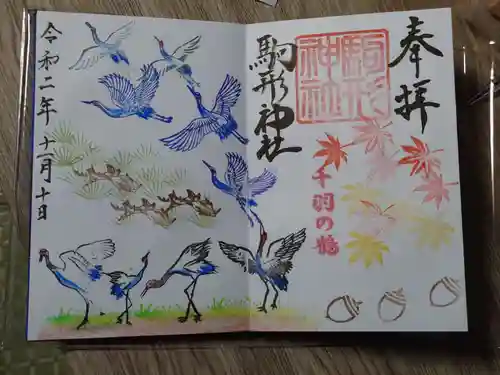 奉拝
駒形
神社
駒形神社
千羽の鶴
令和二年十一月十日